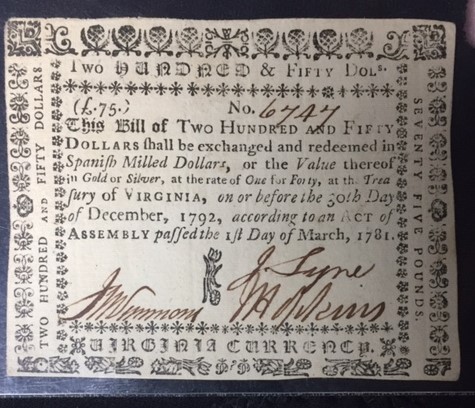 TWO HUNDRED & FIFTY DOLS.
(£.75.) No. 6747
This Bill of TWO HUNDRED AND FIFTY
DOLLARS ſhall be exchanged and redeemed in
Spaniſh Milled Dollars, or the Value thereof
in Gold or Silver, at the rate of One for Forty, at the Trea
ſury of VIRGINIA, on or before the 30th Day
of December, 1792, according to an ACT of
ASSEMBLY paſſed the 1ſt Day of March, 1781.
J. Lyne
JHopkins
VIRGINIA CURRENCY.
TWO HUNDRED AND FIFTY DOLLARS
SEVENTY FIVE POUNDS.